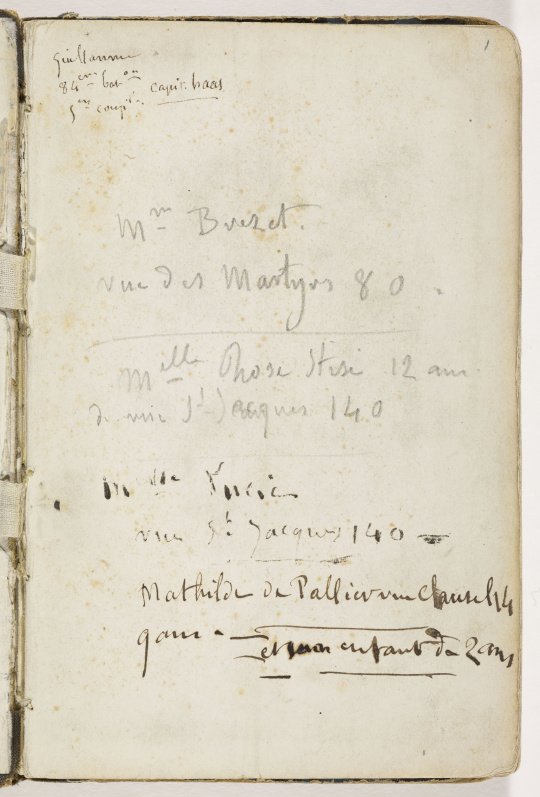 1
Guillaume
84em baton capit. haas
5em compie
Mm Brezet.
rue des Martyrs 80.
Melle Rhose 12 ans
de rue St Jacques 140
Mlle Lucie
rue St Jacques 140
Mathilde de Pallier rue Clausel 14
9 ans et son enfant de 2 ans